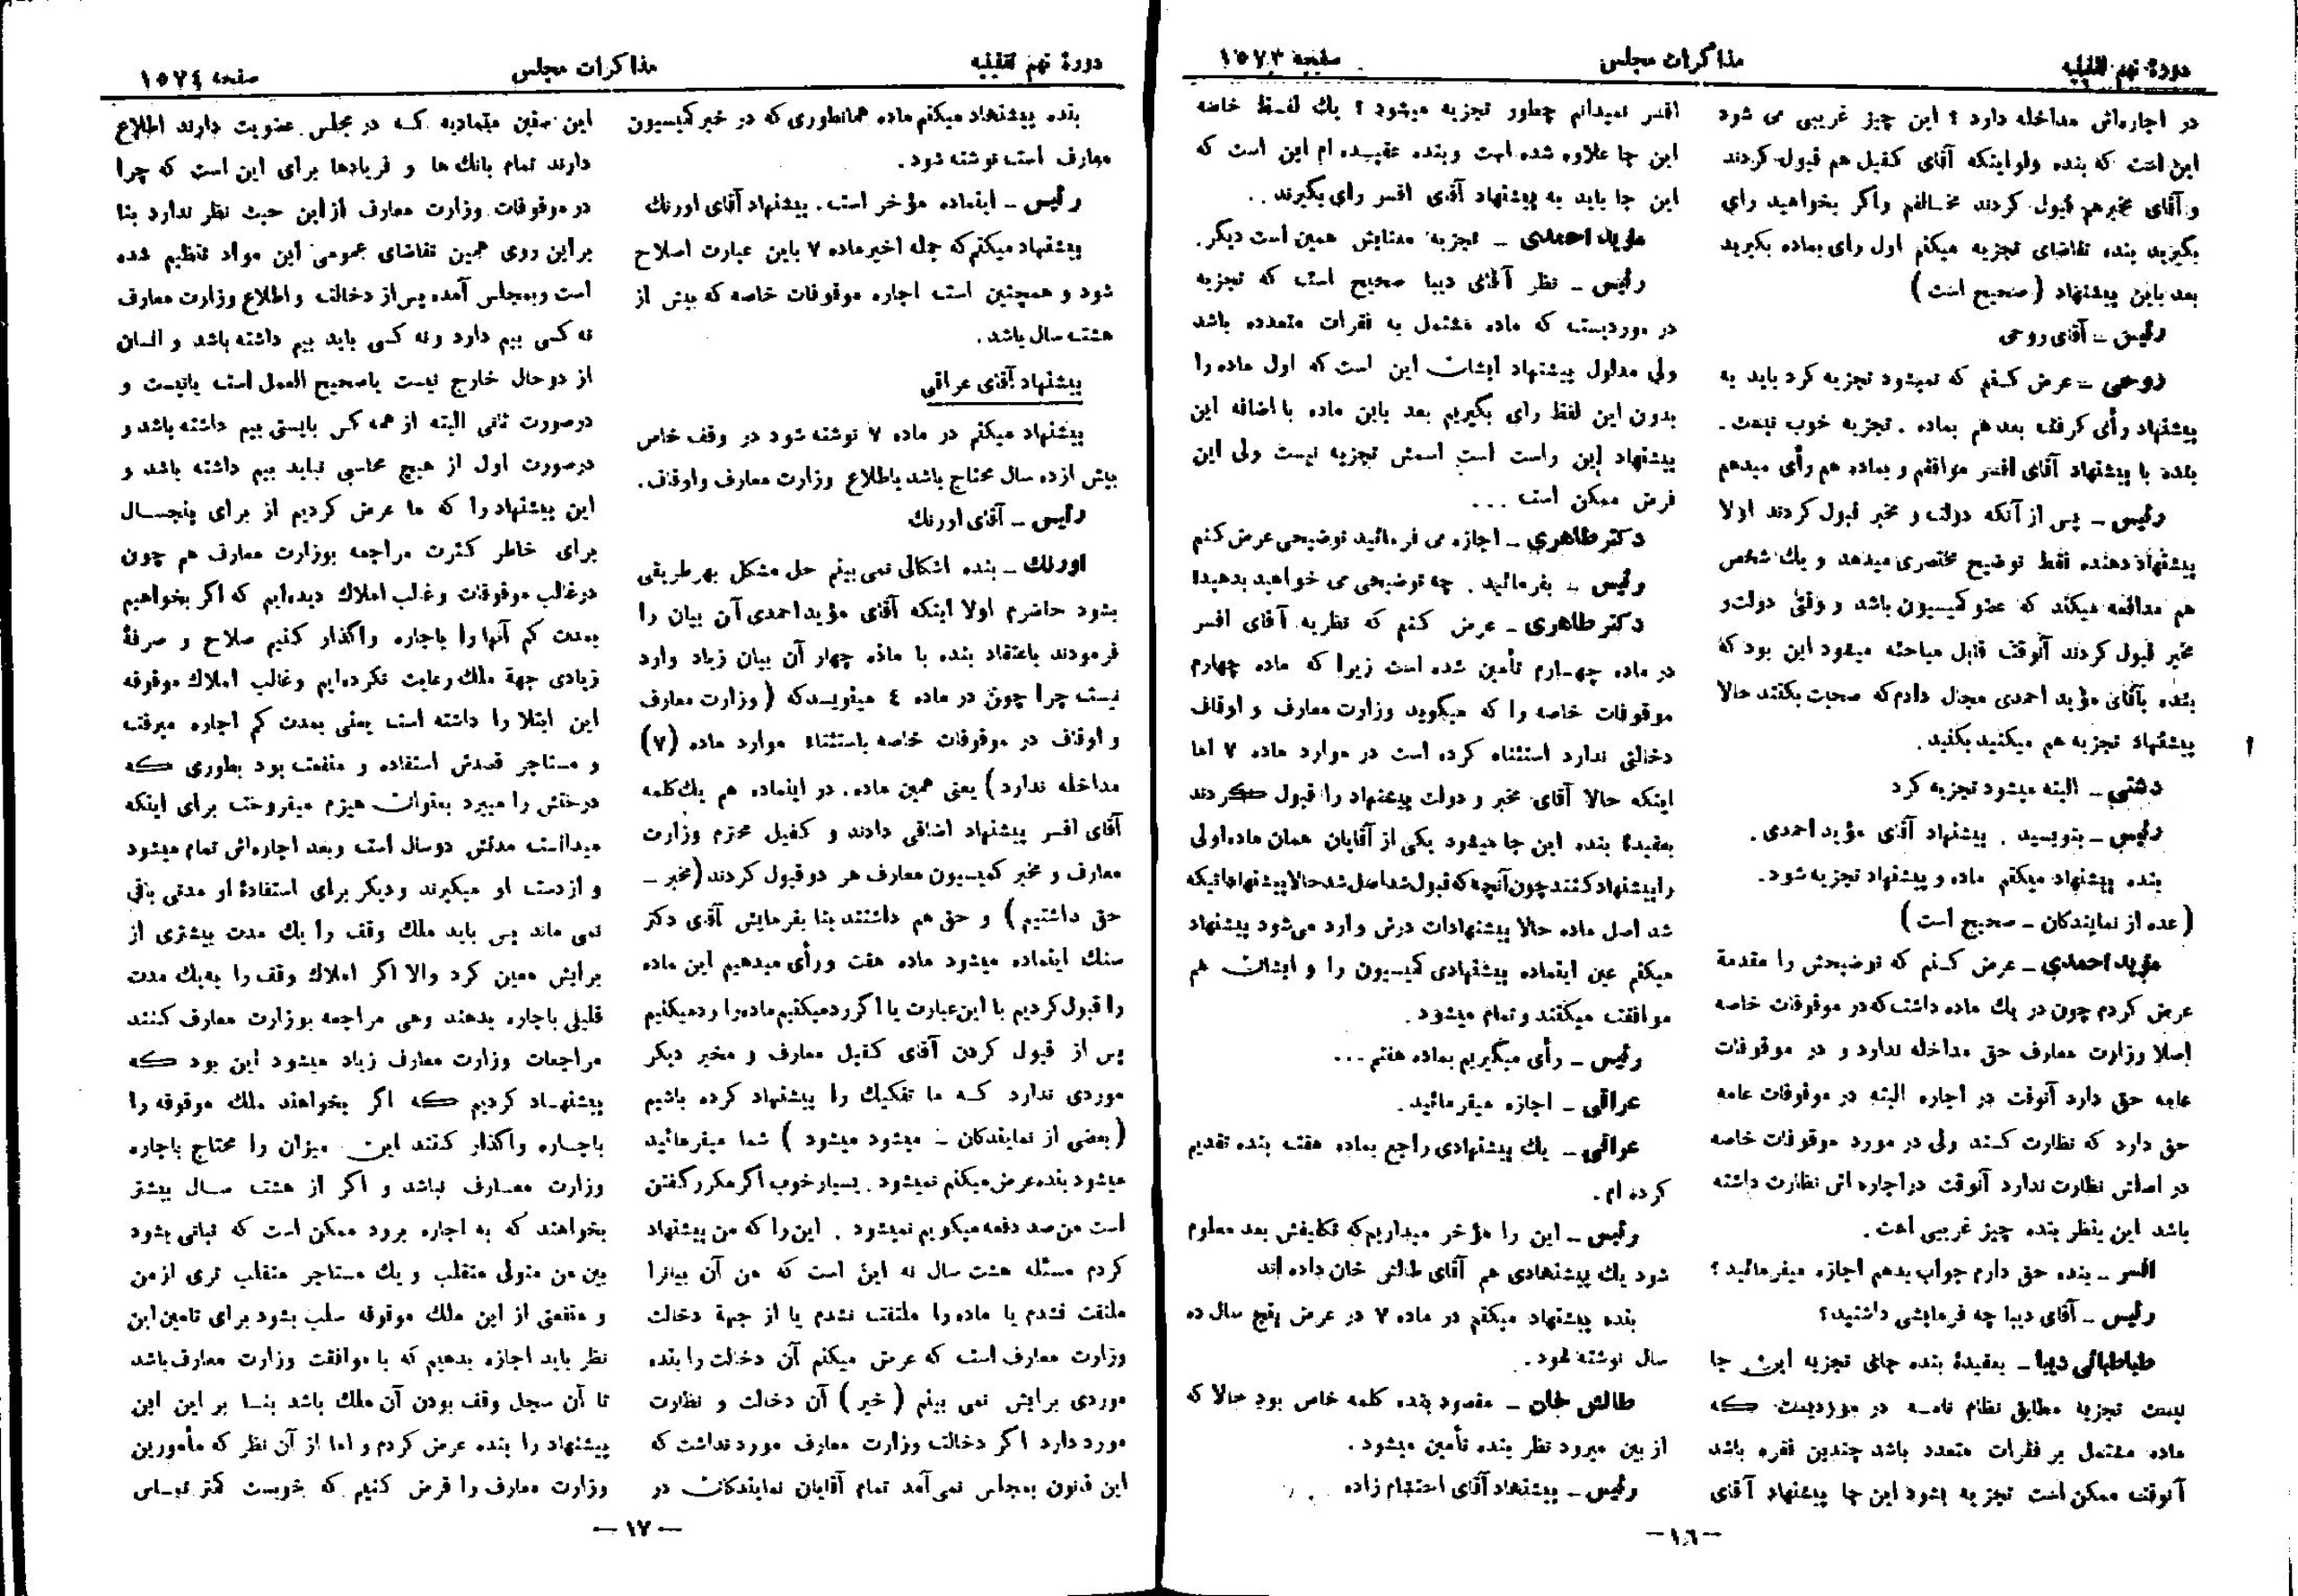 دورهٔ نهم تقنینیه
مذاکرات مجلس
صفحه ۱۵۷۳
در اجاره‌اش مداخله دارد ؟ این چیز غریبی می شود
این است که بنده ولو اینکه آقای کفیل هم قبول کردند
و آقای مخبر هم قبول کردند مخالفم واگر بخواهید رای
بگیرید بنده تقاضای تجزیه میکنم اول رای بماده بگیرید
بعد باین پیشنهاد (صحیح است)
رئیس ـ آقای روحی
روحی ـ عرض کنم که نمیشود تجزیه کرد باید به
پیشنهاد رأی گرفت بعد هم بماده . تجزیه خوب نیست .
بنده با پیشنهاد آقای افسر موافقم و بماده هم رأی میدهم
رئیس ـ پس از آنکه دولت و مخبر قبول کردند اولا
پیشنهاد دهنده فقط توضیح مختصری میدهد و یك شخص
هم مدافعه میکند که عضو کمیسیون باشد و وقتی دولت و
مخبر قبول کردند آنوقت قابل مباحثه میشود این بود که
بنده بآقای مؤید احمدی مجال دادم که صحبت بکنند حالا
پیشنهاد تجزیه هم میکنید بکنید .
دشتی ـ البته میشود تجزیه کرد
رئیس ـ بنویسید . پیشنهاد آقای مؤید احمدی .
بنده پیشنهاد میکنم ماده و پیشنهاد تجزیه شود .
(عده از نمایندگان ـ صحیح است)
مؤید احمدی ـ عرض کنم که توضیحش را مقدمة
عرض کردم چون در یك ماده داشت که در موقوفات خاصه
اصلا وزارت معارف حق مداخله ندارد و در موقوفات
عامه حق دارد آنوقت در اجاره البته در موقوفات عامه
حق دارد که نظارت کند ولی در مورد موقوفات خاصه
در اصلش نظارت ندارد آنوقت در اجاره اش نظارت داشته
باشد این بنظر بنده چیز غریبی است .
افسر ـ بنده حق دارم جواب بدهم اجازه میفرمائید ؟
رئیس ـ آقای دیبا چه فرمایشی داشتید؟
طباطبائی دیبا ـ بعقیدهٔ بنده جای تجزیه این جا
نیست تجزیه مطابق نظام نامه در موردیست که
ماده مشتمل بر فقرات متعدد باشد چندین فقره باشد
آنوقت ممکن است تجزیه بشود این جا پیشنهاد آقای
افسر نمیدانم چطور تجزیه میشود ؟ یك لفظ خاصه
این جا علاوه شده است و بنده عقیده ام این است که
این جا باید به پیشنهاد آقای افسر رای بگیرند . .
مؤید احمدی ـ تجزیه معنایش همین است دیگر .
رئیس ـ نظر آقای دیبا صحیح است که تجزیه
در موردیست که ماده مشتمل به فقرات متعدده باشد
ولی مدلول پیشنهاد ایشان این است که اول ماده را
بدون این لفظ رای بگیریم بعد باین ماده با اضافه این
پیشنهاد این راست است اسمش تجزیه نیست ولی این
فرض ممکن است ...
دکتر طاهری ـ اجازه می فرمائید توضیحی عرض کنم
رئیس ـ بفرمائید . چه توضیحی می خواهید بدهید!
دکتر طاهری ـ عرض کنم که نظریه آقای افسر
در ماده چهارم تأمین شده است زیرا که ماده چهارم
موقوفات خاصه را که میگوید وزارت معارف و اوقاف
دخالتی ندارد استثناء کرده است در موارد ماده ۷ اما
اینکه حالا آقای مخبر و دولت پیشنهاد را قبول کردند
بعقیدهٔ بنده این جا میشود یکی از آقایان همان ماده اولی
را پیشنهاد کنند چون آنچه که قبول شد اصل شد حالا پیشنهاداتیکه
شد اصل ماده حالا پیشنهادات درش وارد می‌شود پیشنهاد
میکنم عین اینماده پیشنهادی کمیسیون را و ایشان هم
موافقت میکنند و تمام میشود .
رئیس ـ رأی میگیریم بماده هفتم ...
عراقی ـ اجازه میفرمائید .
عراقی ـ یك پیشنهادی راجع بماده هفت بنده تقدیم
کرده ام .
رئیس ـ این را مؤخر میداریم که تکلیفش بعد معلوم
شود یك پیشنهادی هم آقای طالش خان داده اند
بنده پیشنهاد میکنم در ماده ۷ در عرض پنج سال ده
سال نوشته شود .
طالش خان ـ مقصود بنده کلمه خاص بود حالا که
از بین میرود نظر بنده تأمین میشود .
رئیس ـ پیشنهاد آقای احتشام زاده
— ۱٦ —
دورهٔ نهم تقنینیه
مذاکرات مجلس
صفحه ۱۵۷٤
بنده پیشنهاد میکنم ماده همانطوری که در خبر کمیسیون
معارف است نوشته شود .
رئیس ـ اینماده مؤخر است . پیشنهاد آقای اورنك
پیشنهاد میکنم که جمله اخیر ماده ۷ باین عبارت اصلاح
شود و همچنین است اجاره موقوفات خاصه که بیش از
هشت سال باشد .
پیشنهاد آقای عراقی
پیشنهاد میکنم در ماده ۷ نوشته شود در وقف خاص
بیش از ده سال محتاج باشد باطلاع وزارت معارف و اوقاف .
رئیس ـ آقای اورنك
اورنك ـ بنده اشکالی نمی بینم حل مشکل بهر طریقی
بشود حاضرم اولا اینکه آقای مؤید احمدی آن بیان را
فرمودند باعتقاد بنده با ماده چهار آن بیان زیاد وارد
نیست چرا چون در ماده ٤ مینویسد که (وزارت معارف
و اوقاف در موقوفات خاصه باستثناء موارد ماده (۷)
مداخله ندارد) یعنی همین ماده . در اینماده هم یك کلمه
آقای افسر پیشنهاد اضافی دادند و کفیل محترم وزارت
معارف و مخبر کمیسیون معارف هر دو قبول کردند (مخبر ـ
حق داشتیم) و حق هم داشتند بنا بفرمایش آقای دکتر
سنك اینماده میشود ماده هفت و رأی میدهیم این ماده
را قبول کردیم با این عبارت یا اگر رد میکنیم ماده را رد میکنیم
پس از قبول کردن آقای کفیل معارف و مخبر دیگر
موردی ندارد که ما تفکیك را پیشنهاد کرده باشیم
(بعضی از نمایندگان ـ میشود میشود) شما میفرمائید
میشود بنده عرض میکنم نمیشود . بسیار خوب اگر مکرر گفتن
است من صد دفعه میگویم نمیشود . این را که من پیشنهاد
کردم مسئله هشت سال نه این است که من آن بیانرا
ملتفت نشدم یا ماده را ملتفت نشدم یا از جهة دخالت
وزارت معارف است که عرض میکنم آن دخالت را بنده
موردی برایش نمی بینم (خیر) آن دخالت و نظارت
مورد دارد اگر دخالت وزارت معارف مورد نداشت که
این قانون بمجلس نمی آمد تمام آقایان نمایندگان در
این سنین متمادیه که در مجلس عضویت دارند اطلاع
دارند تمام بانك ها و فریادها برای این است که چرا
در موقوفات وزارت معارف از این حیث نظر ندارد بنا
بر این روی همین تقاضای عمومی این مواد تنظیم شده
است و بمجلس آمده پس از دخالت و اطلاع وزارت معارف
نه کسی بیم دارد و نه کسی باید بیم داشته باشد و انسان
از دو حال خارج نیست یا صحیح العمل است یا نیست و
در صورت ثانی البته از همه کس بایستی بیم داشته باشد و
در صورت اول از هیچ محاسبی نباید بیم داشته باشد و
این پیشنهاد را که ما عرض کردیم از برای پنجسال
برای خاطر کثرت مراجعه بوزارت معارف هم چون
در غالب موقوفات و غالب املاك دیده‌ایم که اگر بخواهیم
بمدت کم آنها را باجاره واگذار کنیم صلاح و صرفهٔ
زیادی جهة ملك رعایت نکرده‌ایم و غالب املاك موقوفه
این ابتلا را داشته است یعنی بمدت کم اجاره میرفت
و مستاجر قصدش استفاده و منفعت بود بطوری که
درختش را میبرد بعنوان هیزم میفروخت برای اینکه
میدانست مدتش دو سال است و بعد اجاره‌اش تمام میشود
و از دست او میگیرند و دیگر برای استفادهٔ او مدتی باقی
نمی ماند پس باید ملك وقف را یك مدت بیشتری از
برایش معین کرد والا اگر املاك وقف را به یك مدت
قلیلی باجاره بدهند وهی مراجعه بوزارت معارف کنند
مراجعات وزارت معارف زیاد میشود این بود که
پیشنهاد کردیم که اگر بخواهند ملك موقوفه را
باجاره واگذار کنند این میزان را محتاج باجازه
وزارت معارف نباشد و اگر از هشت سال بیشتر
بخواهند که به اجاره برود ممکن است که تبانی بشود
بین من متولی متقلب و یك مستاجر متقلب تری از من
و منفعتی از این ملك موقوفه سلب بشود برای تامین این
نظر باید اجازه بدهیم که با موافقت وزارت معارف باشد
تا آن سجل وقف بودن آن ملك باشد بنا بر این این
پیشنهاد را بنده عرض کردم و اما از آن نظر که مأمورین
وزارت معارف را فرض کنیم که خوبست کمتر تماس
— ۱۷ —